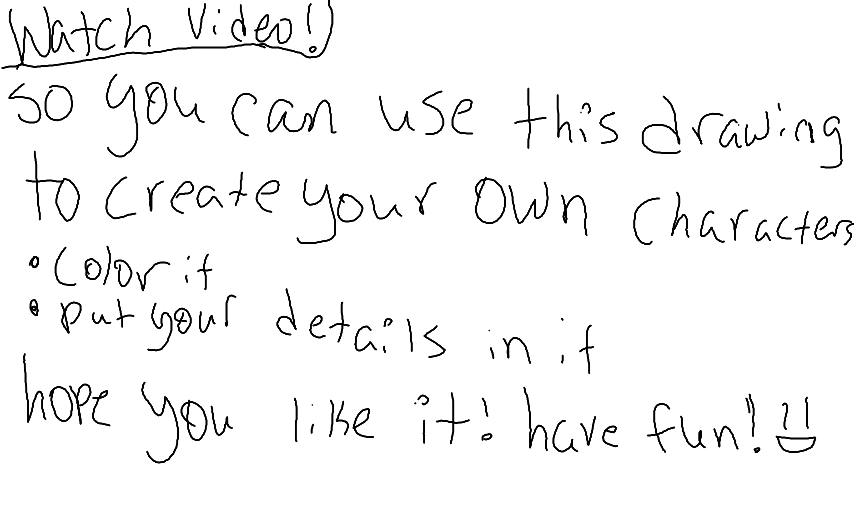 Watch Video!
so you can use this drawing
to create your own characters
• Color it
• put your details in it
hope you like it! have fun!